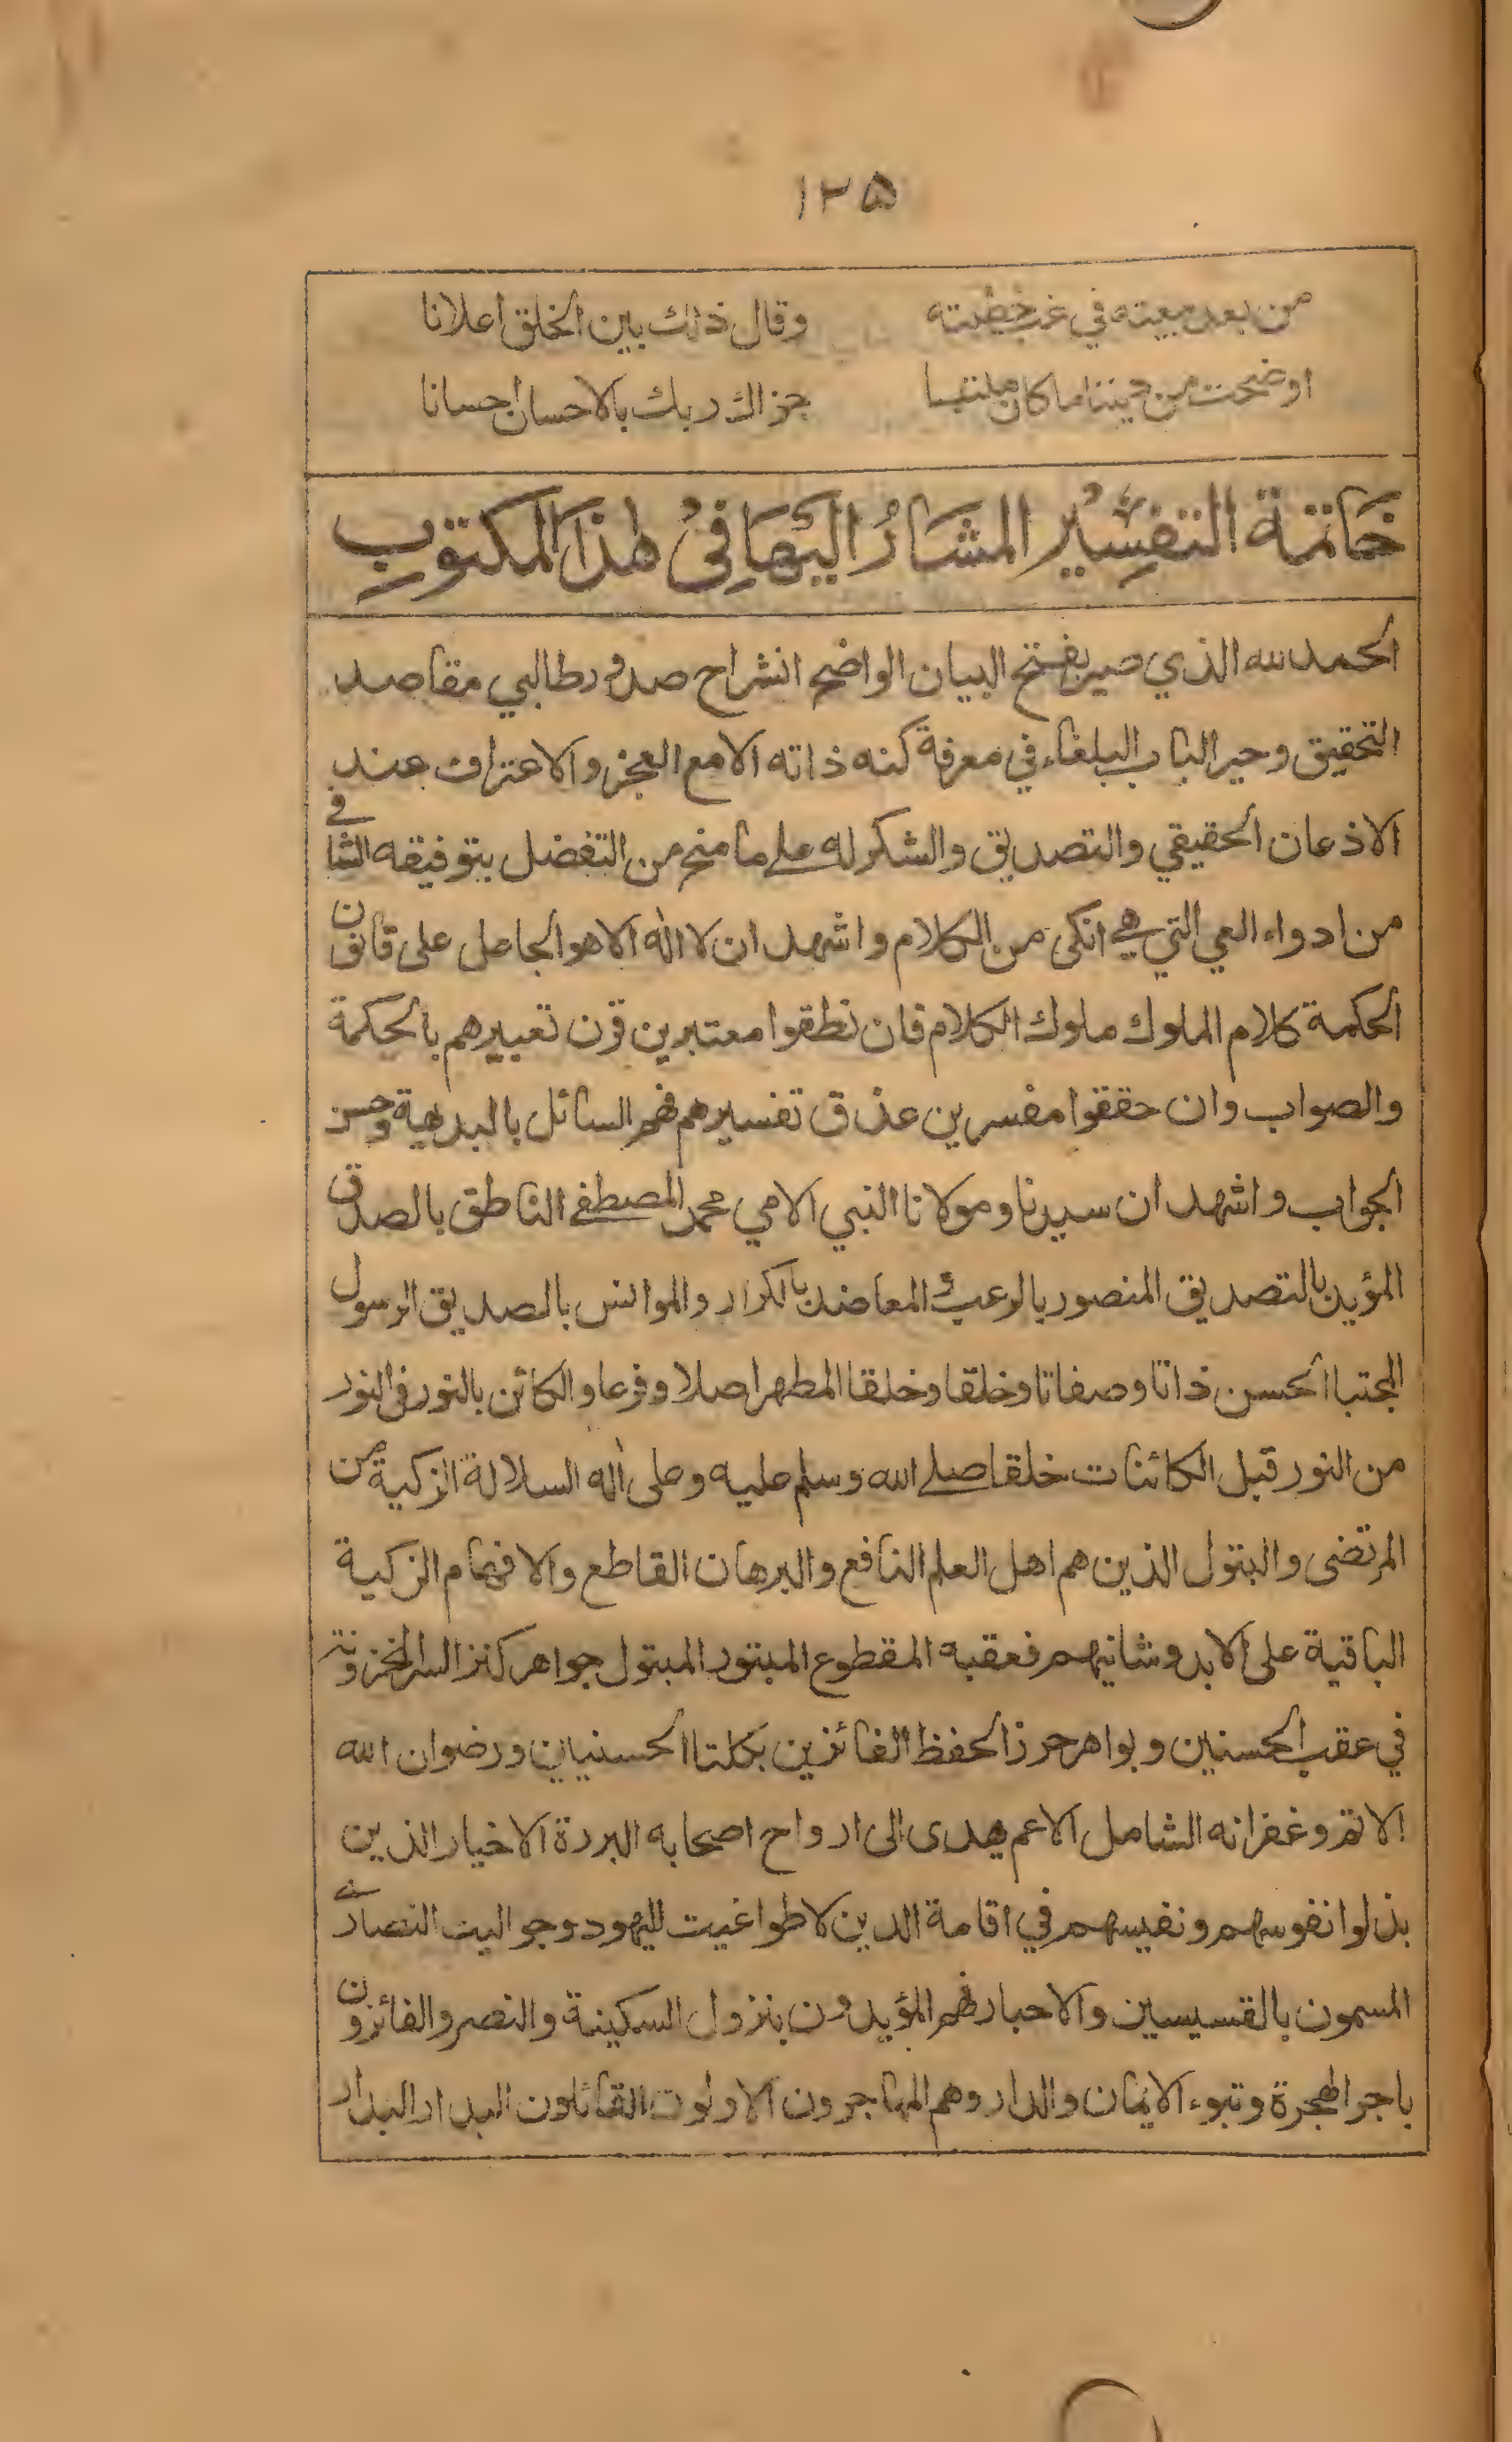 ١٢۵
من بعد بيعته في غب خطبته وقال ذلك بين الخلق اعلانا
اوضحت من ديننا ما كان ملتبسا جزاك ربك بالاحسان احسانا
خَاتمة التفسِير المشَارُ اليهَا فِي هٰذا المكتوبِ
الحمد لله الذي صير بفتح البيان الواضح انشراح صدور طالبي مقاصد
التحقيق وحير الباب البلغاء في معرفة كنه ذاته الا مع العجز والاعتراف عند
الاذعان الحقيقي والتصديق والشكر له على ما منح من التفضل بتوفيقه الشافي
من ادواء العي التي هي انكى من الكلام واشهد ان لا اله الا هو الجاعل على قانون
الحكمة كلام الملوك ملوك الكلام فان نطقوا معتبرين قرن تعبيرهم بالحكمة
والصواب وان حققوا مفسرين عذق تفسيرهم فهم السائل بالبديهة وحسن
الجواب واشهد ان سيدنا ومولانا النبي الامي محمد المصطفى الناطق بالصدق
المؤيد بالتصديق المنصور بالرعب و المعاضد بالكرار والموانس بالصديق الرسول
المجتبا الحسن ذاتا وصفاتا وخلقا وخلقا المطهر اصلا وفرعا والكائن بالنور في النور
من النور قبل الكائنات خلقا صلى الله وسلم عليه وعلى اله السلالة الزكية من
المرتضى والبتول الذين هم اهل العلم النافع والبرهان القاطع والافهام الزكية
الباقية على الابد وشانيهم فعقبه المقطوع المبتور المبتول جواهر كنز السر المخزونة
في عقب الحسنين وبواهر حرز الحفظ الفائزين بكلتا الحسنيين ورضوان الله
الاتم وغفرانه الشامل الاعم يهدى الى ارواح اصحابه البررة الاخيار الذين
بذلوا نفوسهم ونفيسهم في اقامة الدين لا طواغيت لليهود وجواليت النصارى
المسمون بالقسيسين والاحبار فهم المؤيدون بنزول السكينة والنصر والفائزون
باجر الهجرة وتبوء الايمان والدار وهم المهاجرون الاولون القائلون البدار البدار